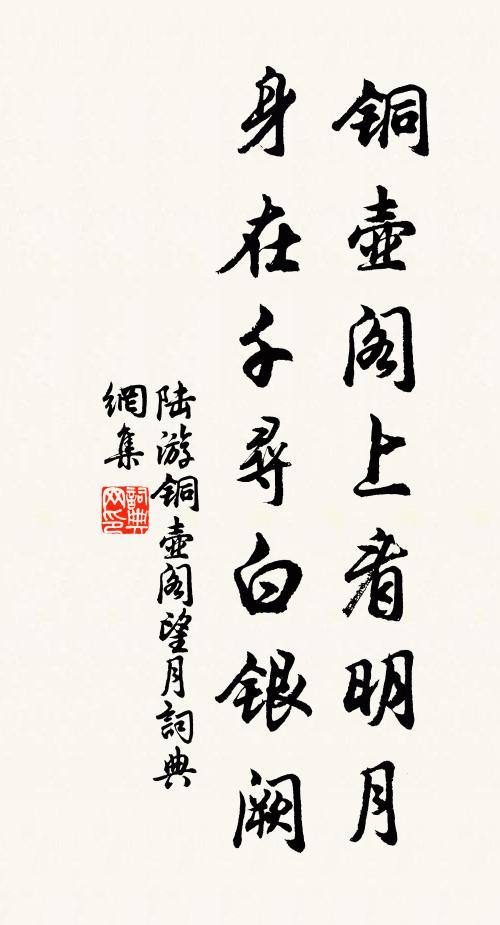 铜壶阁上看明月
身在千寻白银阙
陆游铜壶阁望月詞典
網集
詞典
网印